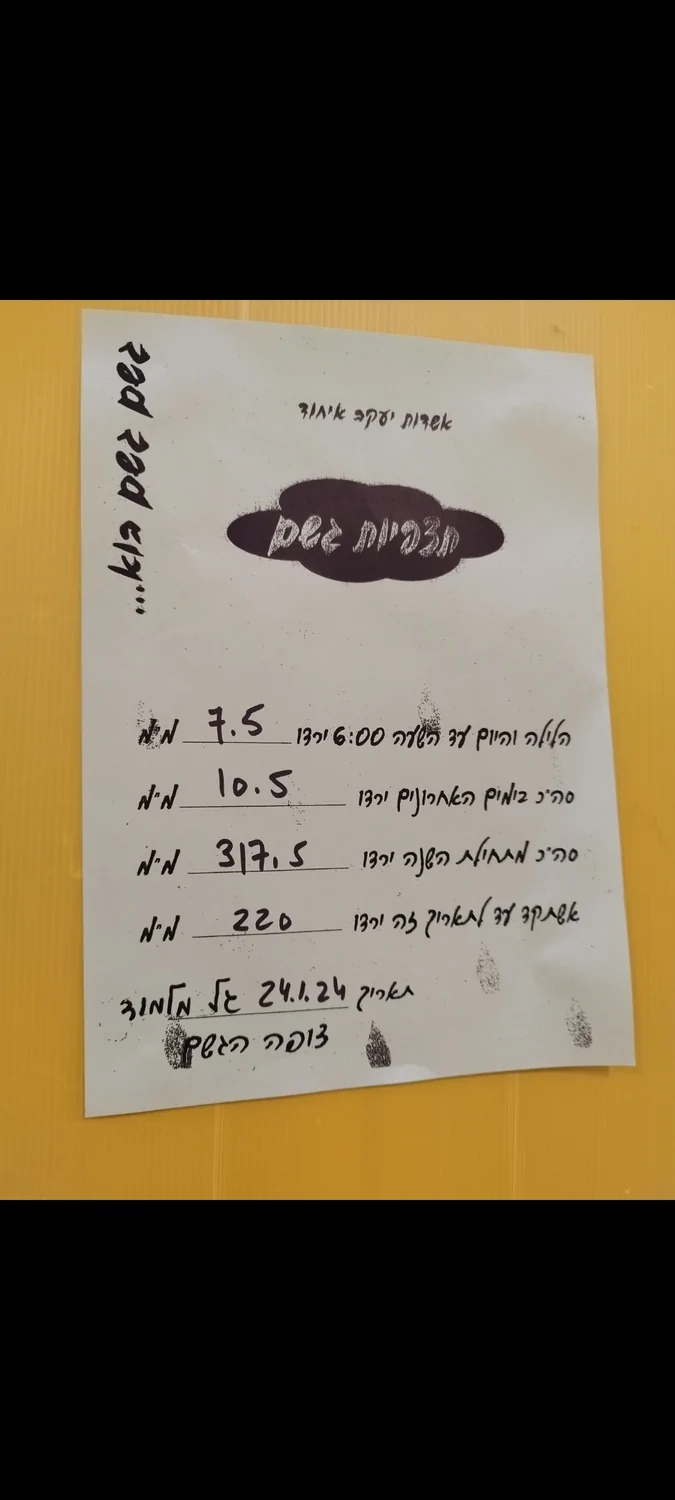 גשם גשם בוא...
אשדות יעקב איחוד
תצפיות גשם
הלילה והיום עד השעה 6:00 ירדו 7.5 מ"מ
סה"כ בימים האחרונים ירדו 10.5 מ"מ
סה"כ מתחילת השנה ירדו 317.5 מ"מ
אשתקד עד לתאריך זה ירדו 220 מ"מ
תאריך 24.1.24 גל מלמוד
צופה הגשם